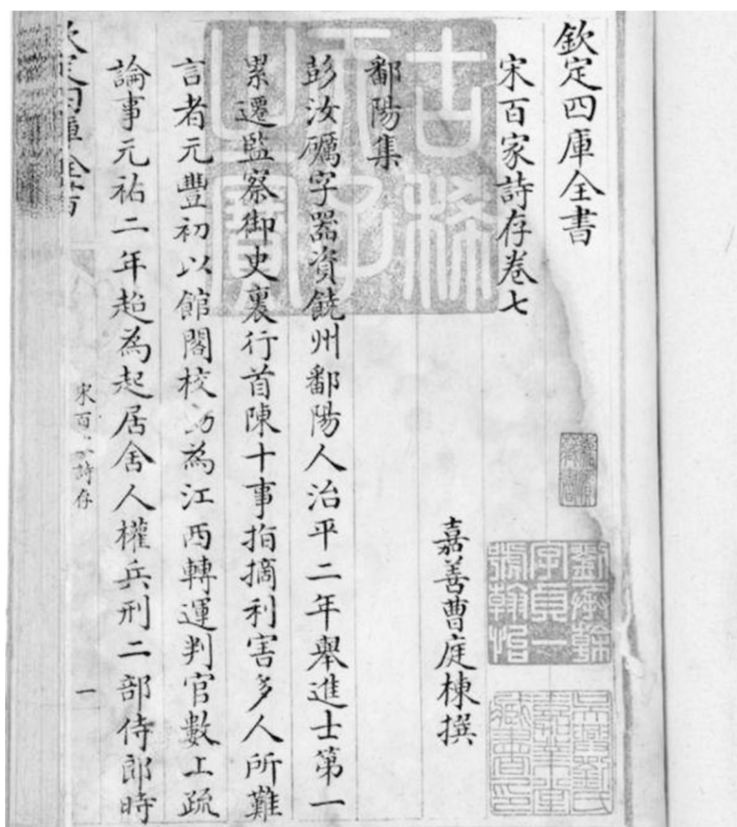 欽定四庫全書
宋百家詩存卷七
嘉善曹庭棟撰
鄱陽集
彭汝礪字器資饒州鄱陽人治平二年舉進士第一
累遷監察御史裏行首陳十事指摘利害多人所難
言者元豐初以館閣校勘為江西轉運判官數上疏
論事元祐二年起為起居舍人權兵刑二部侍郎時
欽定四庫全書
宋百家詩存
一
古稀天子之寶
劉承幹字貞一號翰怡
吳興劉氏嘉業堂藏書印